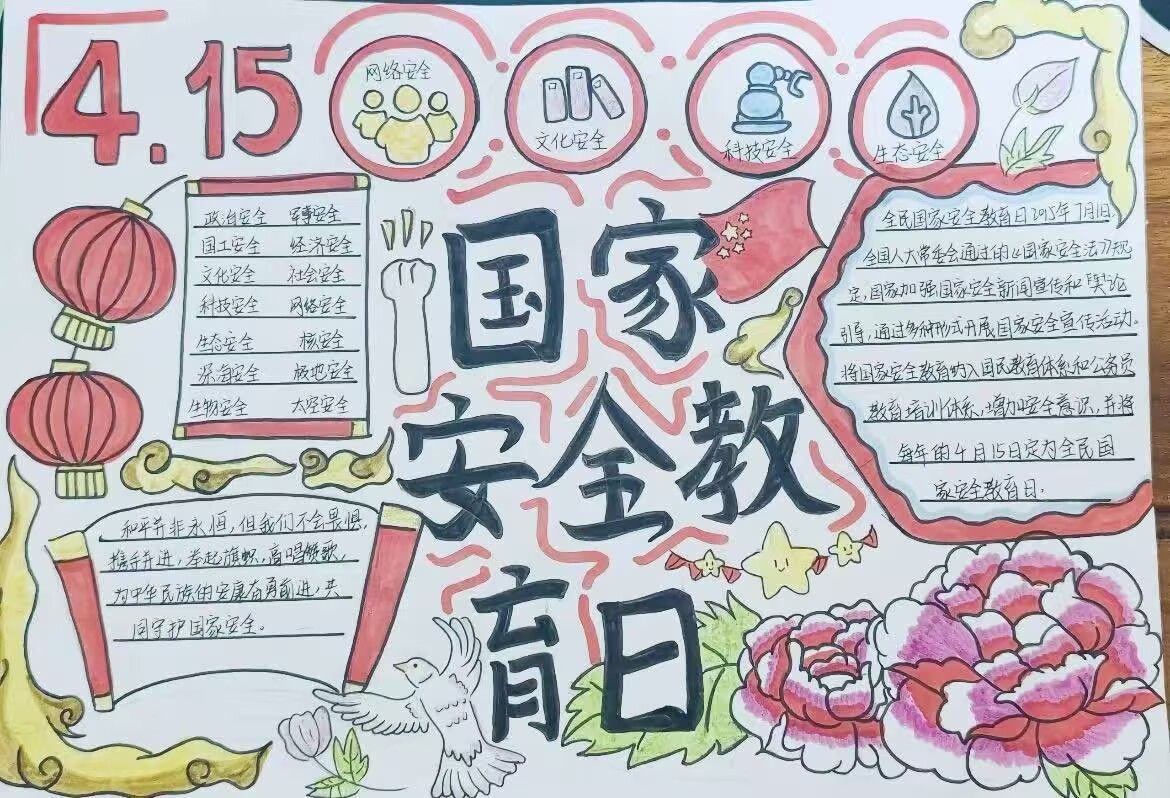 4.15
网络安全
文化安全
科技安全
生态安全
政治安全 军事安全
国土安全 经济安全
文化安全 社会安全
科技安全 网络安全
生态安全 核安全
深海安全 极地安全
生物安全 太空安全
国家
安全教
育日
全民国家安全教育日2015年7月1日.
全国人大常委会通过的《国家安全法》规
定,国家加强国家安全新闻宣传和舆论
引导,通过多种形式开展国家安全宣传活动.
将国家安全教育纳入国民教育体系和公务员
教育培训体系,增加安全意识,并将
每年的4月15日定为全民国
家安全教育日.
和平并非永恒,但我们不会畏惧,
携手并进,举起旗帜,高唱赞歌,
为中华民族的安康奋勇前进,共
同守护国家安全。